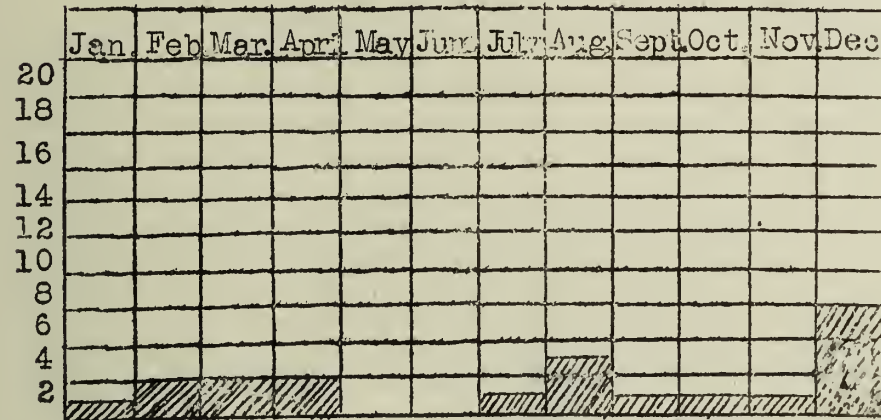 Jan. Feb Mar. Apri May Jun July Aug Sept. Oct. Nov. Dec
20
18
16
14
12
10
8
6
4
2